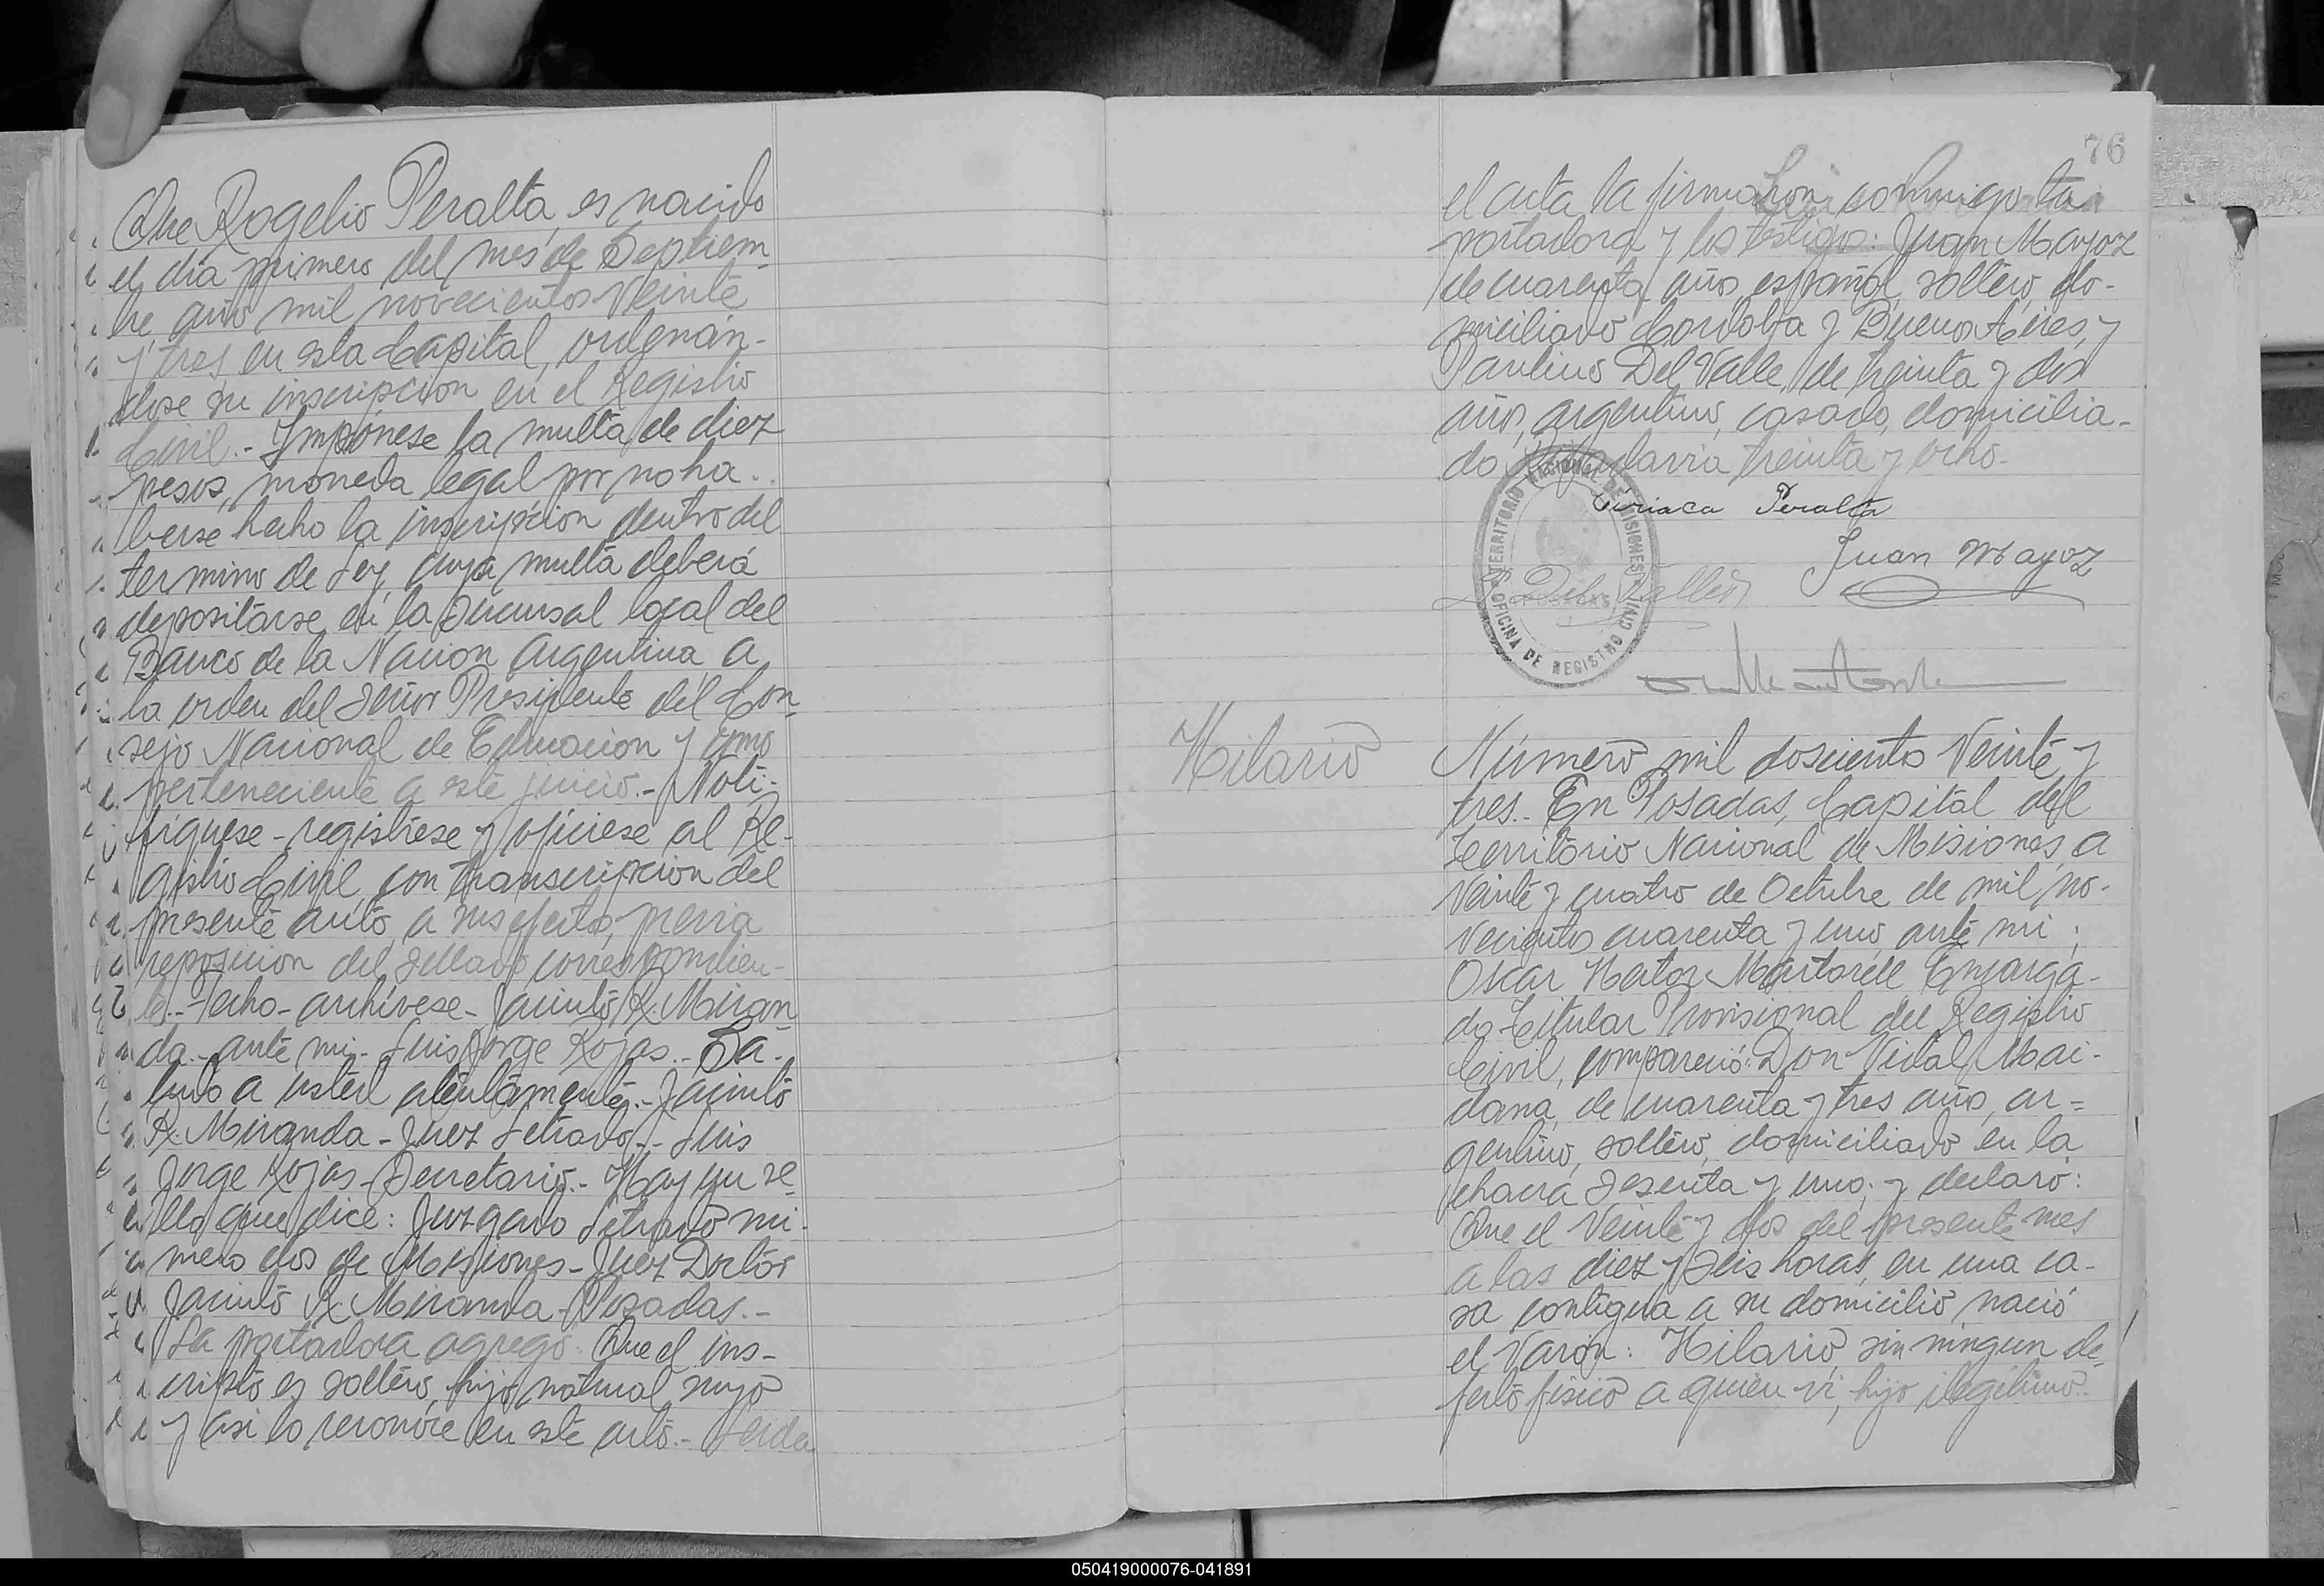 Que Rogelio Peralta, es nacido
el día primero del mes de Septiem-
bre, año mil novecientos veinte
y tres, en esta Capital, ordenán-
dose su inscripción en el Registro
Civil.- Impónese la multa de diez
pesos, moneda legal por no ha-
berse hecho la inscripción dentro del
termino de Ley, cuya multa deberá
depositarse en la Sucursal local del
Banco de la Nación Argentina a
la orden del Señor Presidente del Con-
sejo Nacional de Educación y como
perteneciente a este juicio.- Noti-
fíquese - registrese y ofíciese al Re-
gistro Civil, con transcripción del
presente auto, a sus efectos, previa
reposición del Sellado correspondien-
te.- Fecho - archívese - Jacinto R. Miran-
da.- ante mi.- Luis Jorge Rojas.- Sa-
ludo a usted atentamente.- Jacinto
R. Miranda - Juez Letrado.- Luis
Jorge Rojas - Secretario.- Hay un se-
llo que dice: Juzgado Letrado nú-
mero dos de Misiones - Juez Doctor
Jacinto R. Miranda - Posadas.-
La portadora agregó: Que el ins-
cripto es soltero, hijo natural suyo
y asi lo reconoce en este acto.- Leida
76
el acta la firmaron conmigo la
portadora y los testigos: Juan Mayoz
de cuarenta años, español, soltero, do-
miciliado Cordoba y Buenos Aires, y
Paulino Del Valle, de treinta y dos
años, argentino, casado, domicilia-
do Rivadavia treinta y ocho.
Ciriaca Peralta
Juan Mayoz
P. Del Valle
TERRITORIO NACIONAL DE MISIONES
POSADAS
OFICINA DE REGISTRO CIVIL
Hilario
Número mil doscientos veinte y
tres.- En Posadas, Capital del
Territorio Nacional de Misiones, a
veinte y cuatro de Octubre de mil no-
vecientos cuarenta y uno, ante mi;
Oscar Hector Martorell Encarga-
do Titular Provisional del Registro
Civil, compareció: Don Vidal Mai-
dana, de cuarenta y tres años, ar-
gentino, soltero, domiciliado en la
chacra sesenta y uno; y declaró:
Que el veinte y dos del presente mes
a las diez y seis horas, en una ca-
sa contigua a su domicilio nació
el varón: Hilario, sin ningun de-
fecto físico a quien ví, hijo ilegítimo.
050419000076-041891